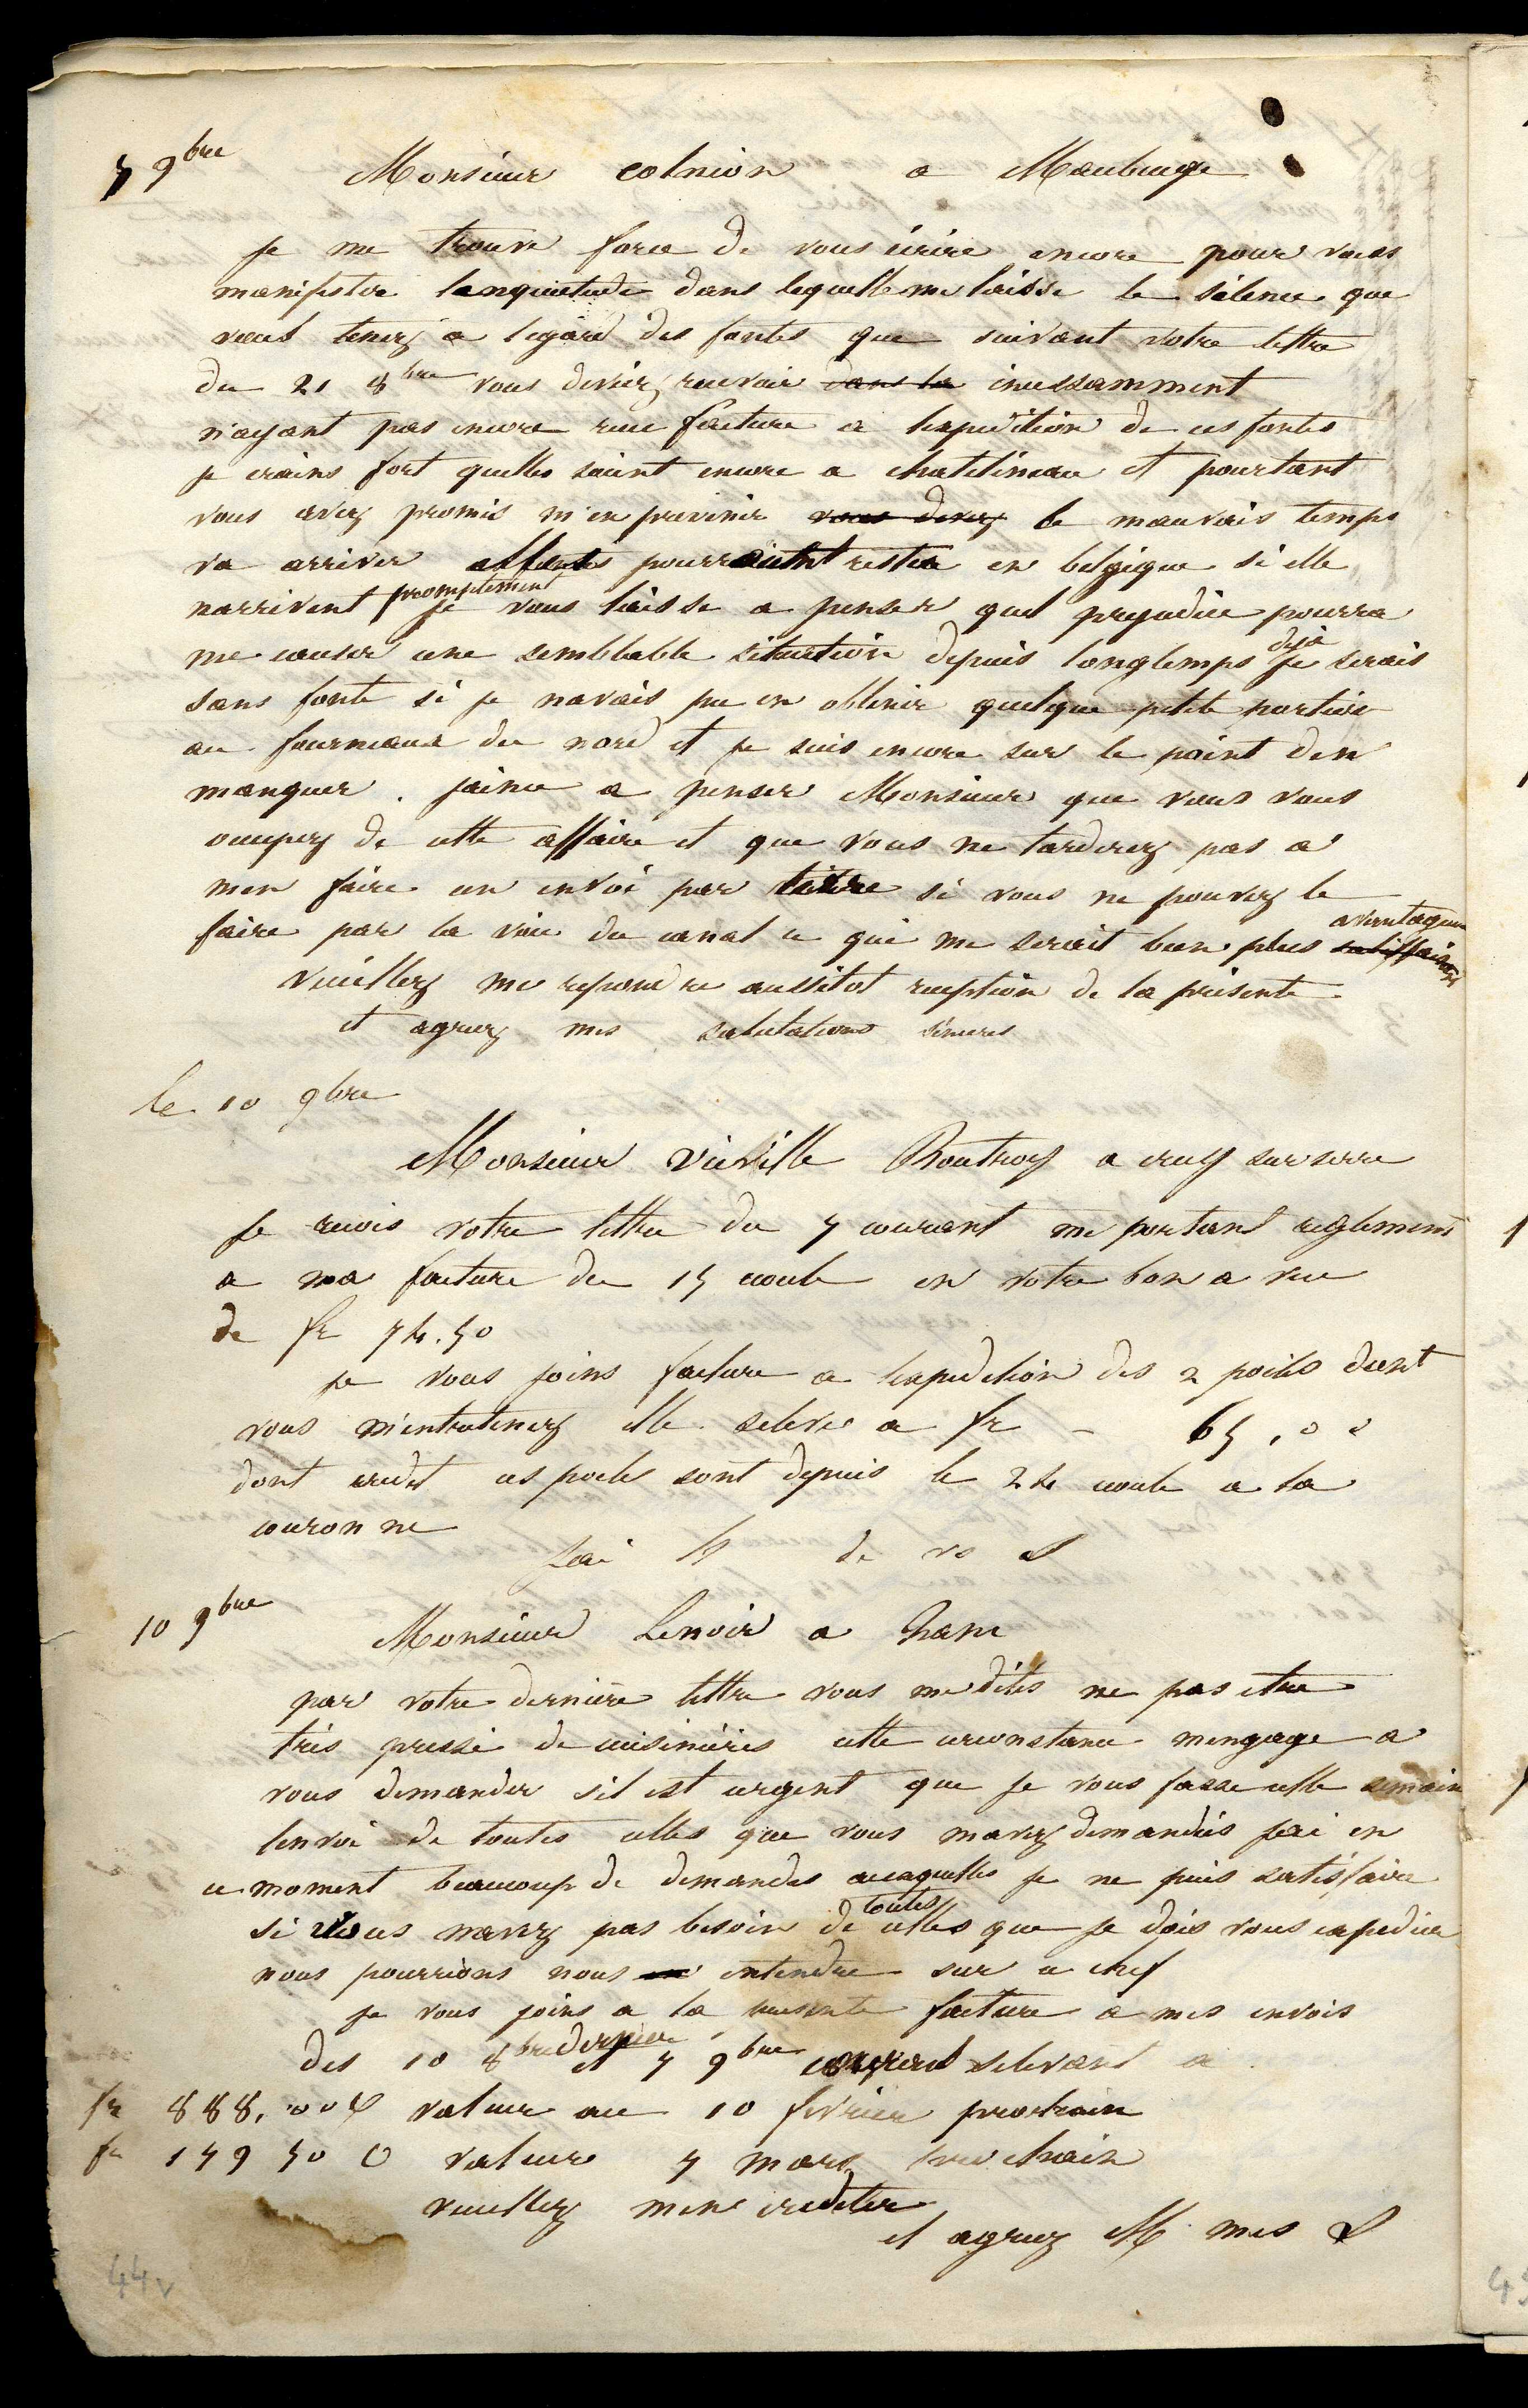 7 9bre
Monsieur colnion a Maubeuge
je me trouve force de vous écrire encore pour vous
manifester lenquietude dans lequelle me laisse le silence que
vous tenez a legard des fontes que suivant votre lettre
du 21 8bre vous deviez recevoir dans la incessamment
n'ayant pas encore reue facture a lexpedition de ces fontes
je crains fort quelles soient encore a chatelineau et pourtant
vous avez promis m'en prevenir vous devez le mauvais temps
va arriver et fontes pourraient rester en belgique si elle
narrivent promptement je vous laisse a penser quel prejudice pourra
me causer une semblable situation depuis longtemps deja je serais
sans fonte si je navais pu en obtenir quelque petite portion
au fourneaux du nord et je suis encore sur le point den
manquer. jaime a penser Monsieur que vous vous
occupez de cette affaire et que vous ne tarderez pas a
men faire un envoi par terre si vous ne pouvez le
faire par la voie du canal ce qui me serait bien plus satisfaisant avantageux
Veuillez me repondre aussitot reception de la présente
et agreez mes salutations sinceres
le 10 9bre
Monsieur viéville Boutroy a crecy sur serre
Je recois votre lettre du 7 courant me portant reglement
a ma facture du 15 ecoule en votre bon a vue
de fr 74.50
je vous joins facture a lexpedition des 2 poeles dont
vous m'entretenez elle seleve a fr - 65,00
dont credit ces poeles sont depuis le 24 ecoule a la
couronne
Jai lh de vo S
10 9bre
Monsieur Lenoir a ham
par votre dernière lettre vous me dites ne pas etre
trés pressé de cuisinières cette circonstance mengage a
vous demander sil est urgent que je vous fasse cette semaine
lenvoi de toutes celles que vous mavez demandées jai en
ce moment beaucoup de demandes auxquelles je ne puis satisfaire
si vous navez pas besoin de toutes celles que je dois vous expedier
nous pourrions nous en entendre sur ce chef
je vous joins a la presente facture a mes envois
des 10 8bre dernier et 7 9bre courant selevant a
fr 888,00 valeur au 10 février prochain
fr 159 50 valeur 7 mars prochain
veuillez men crediter
et agreez M mes S
44v